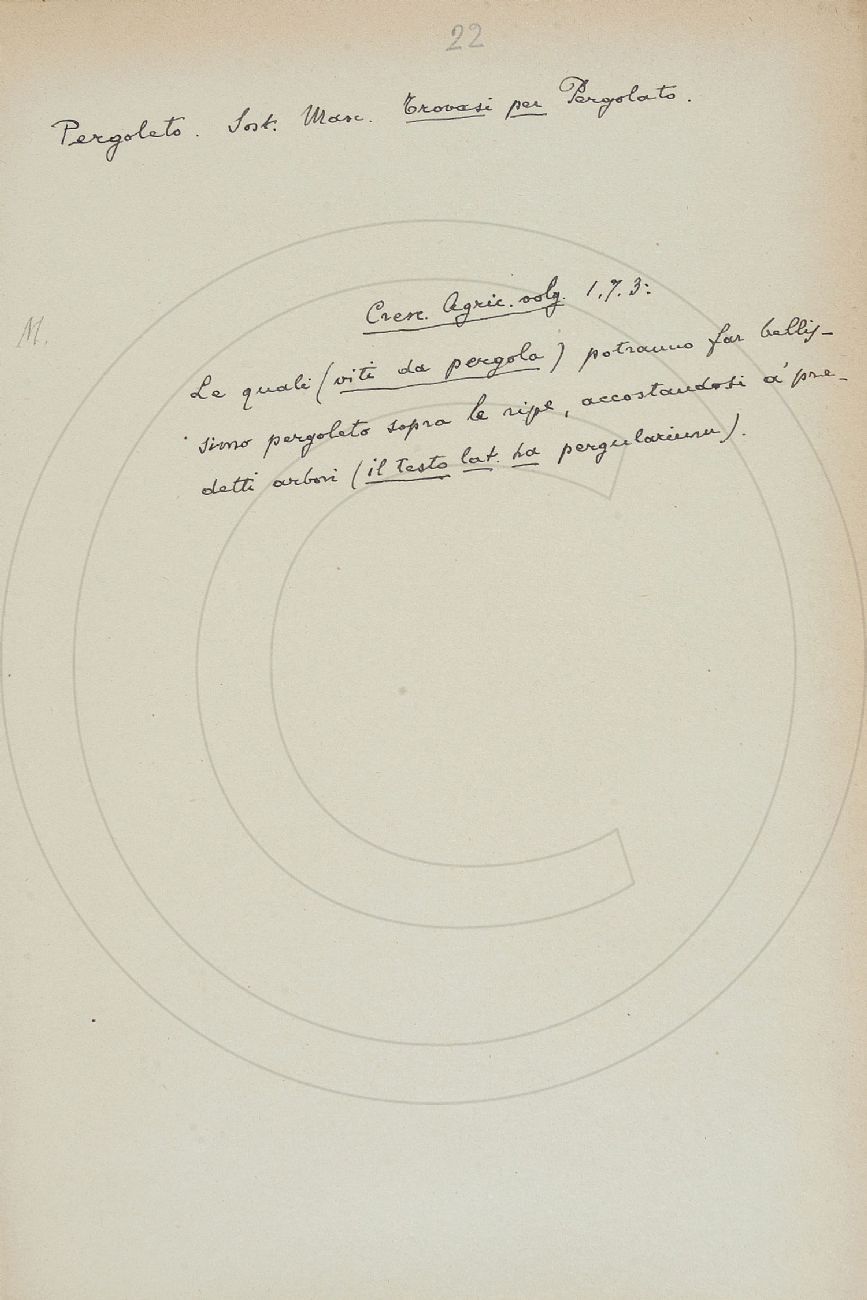 22
Pergoleto. Sost. Masc. Trovasi per Pergolato.
Cresc. Agric. volg. 1.7.3:
M.
Le quali (viti da pergola) potranno far bellis-
simo pergoleto sopra le ripe, accostandosi a' pre-
detti arbori (il testo lat. ha pergularium).